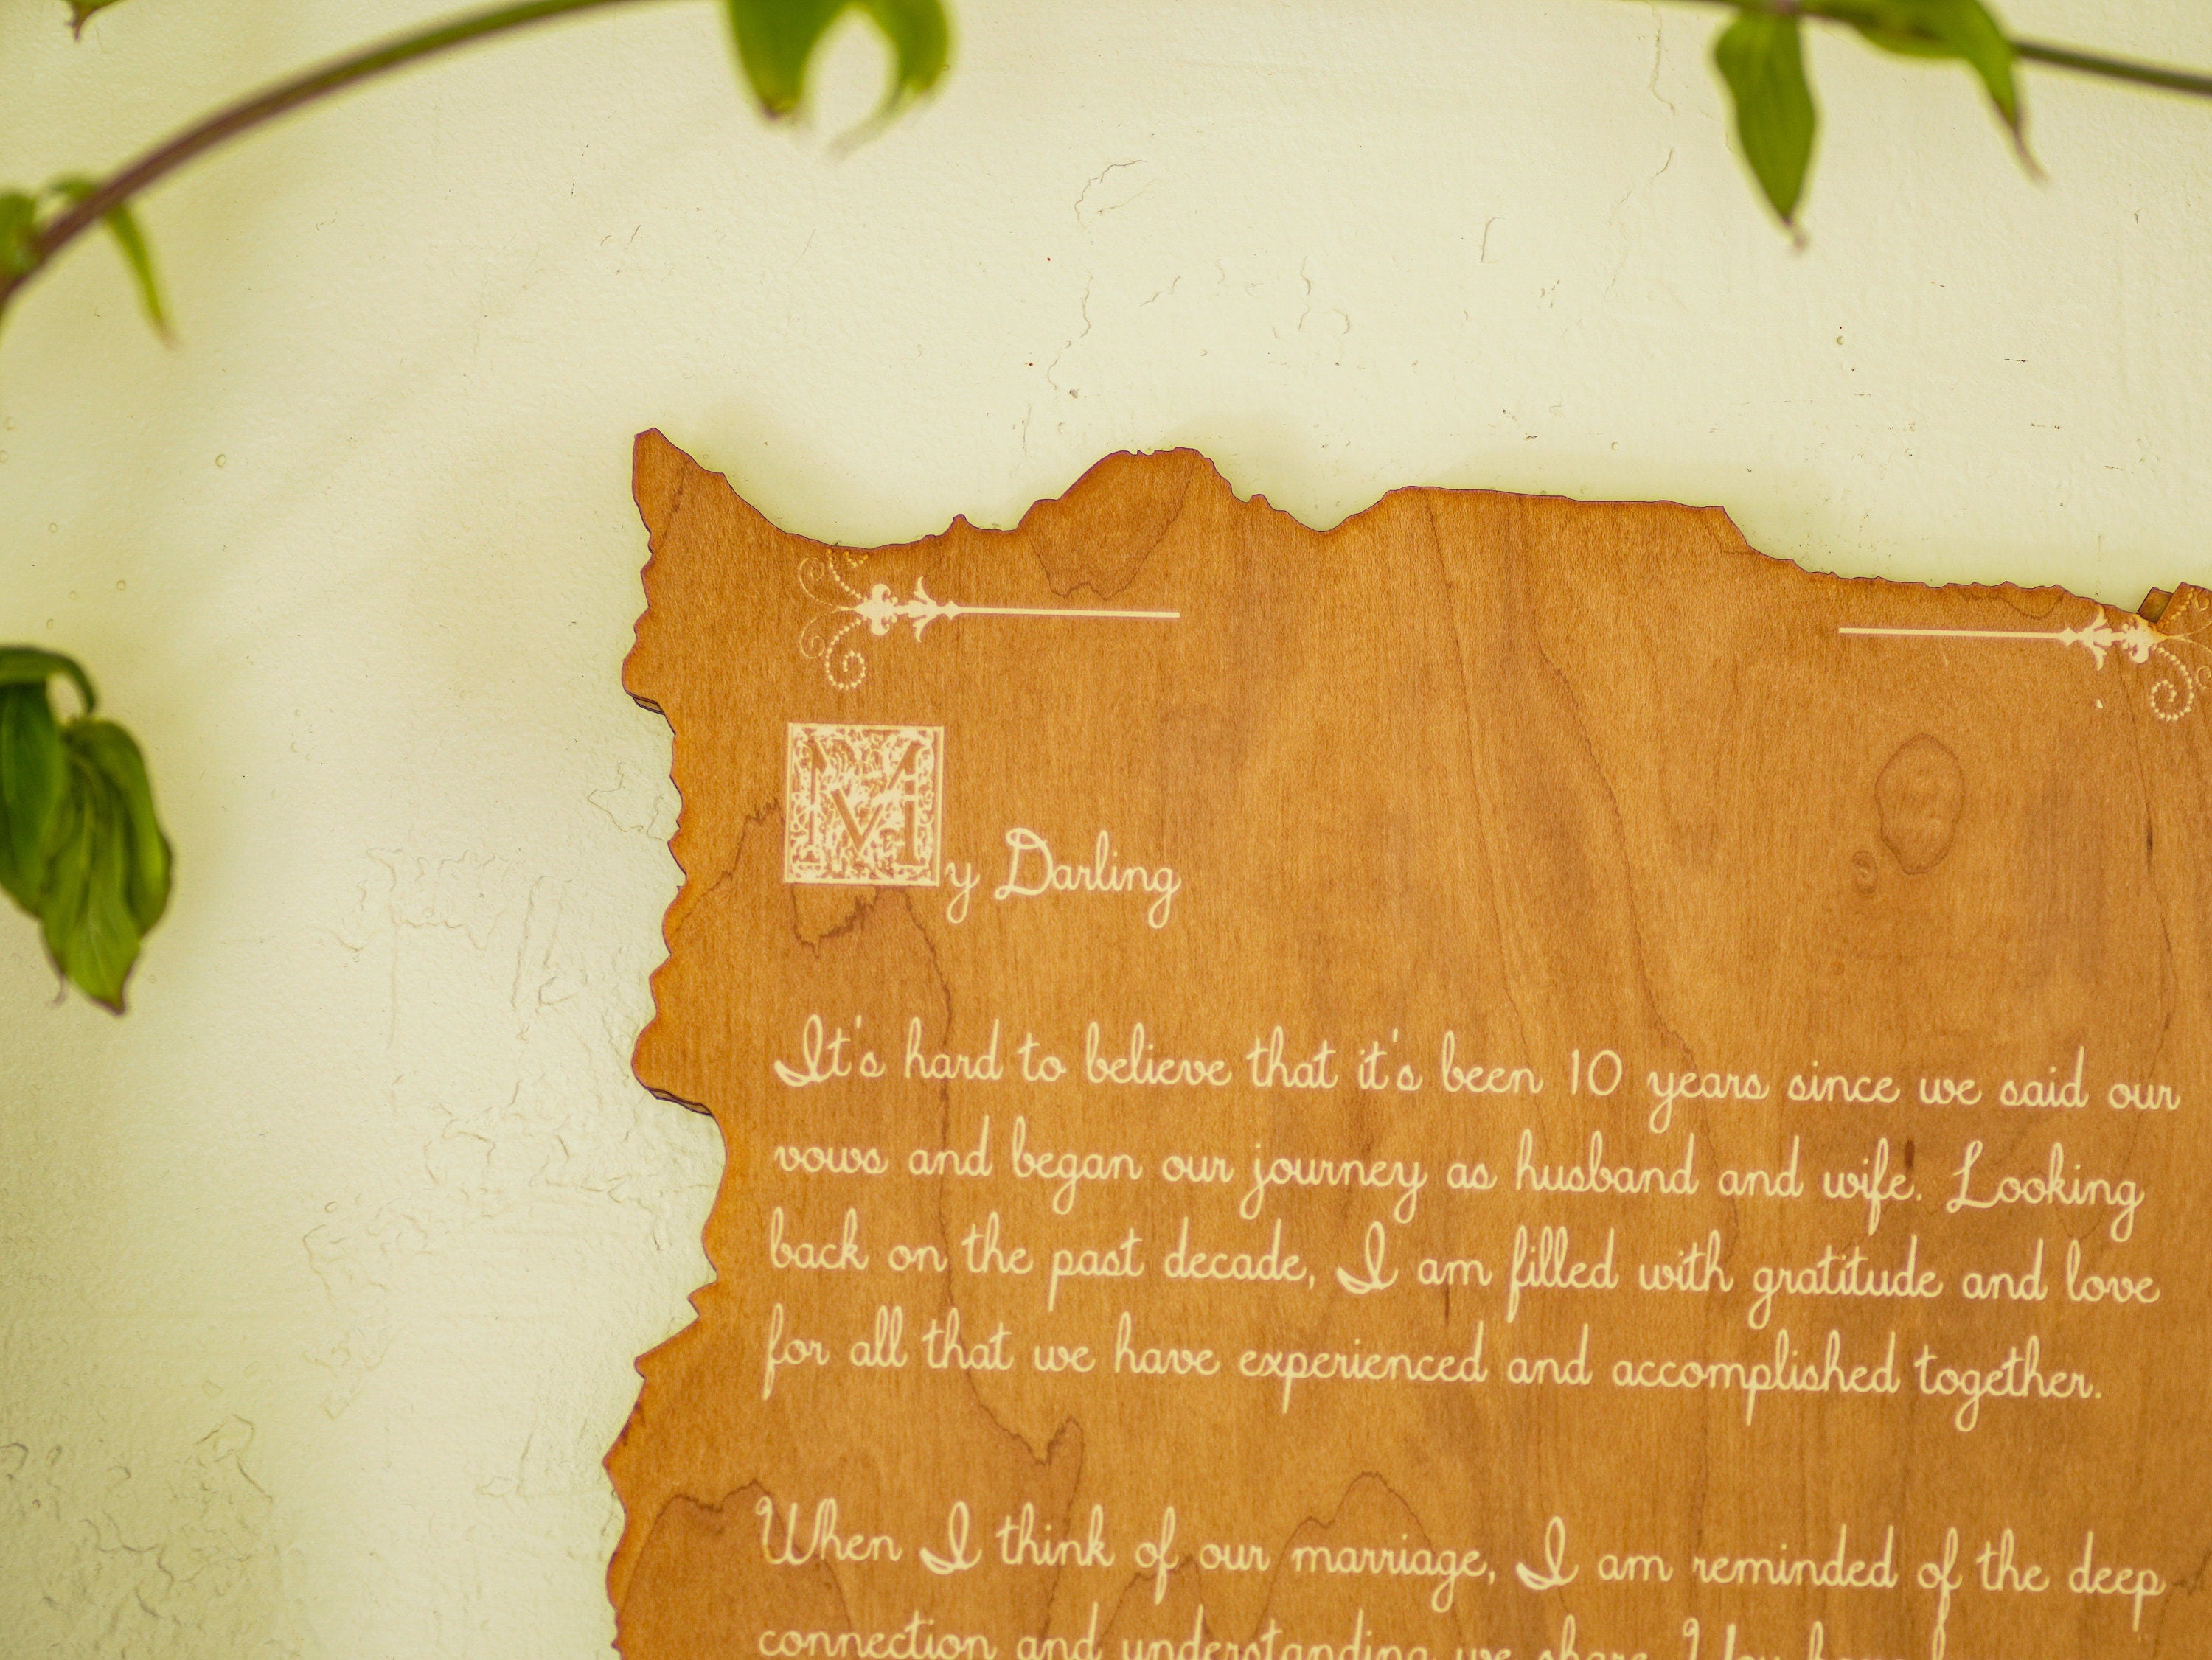 My Darling
It's hard to believe that it's been 10 years since we said our
vows and began our journey as husband and wife. Looking
back on the past decade, I am filled with gratitude and love
for all that we have experienced and accomplished together.
When I think of our marriage, I am reminded of the deep
connection and understanding we share. You